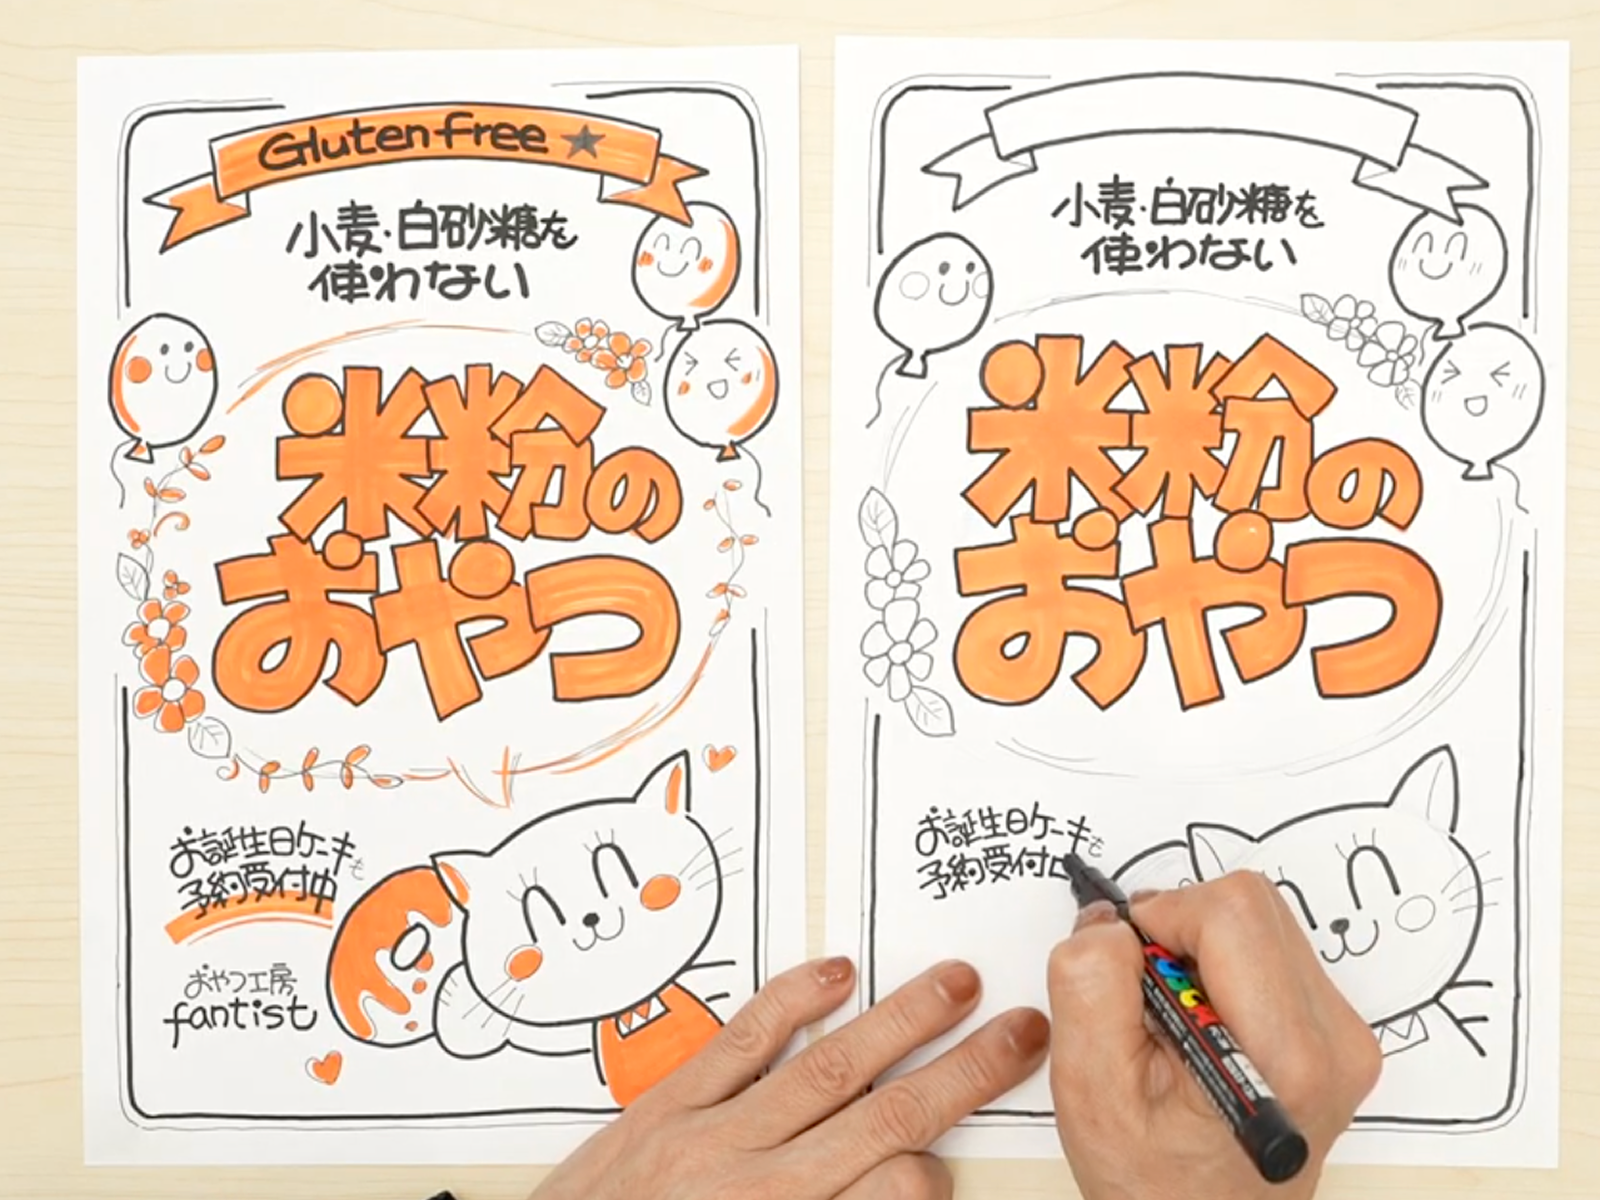 Gluten free★
小麦・白砂糖を
使わない
米粉の
おやつ
お誕生日ケーキも
予約受付中
おやつ工房
fantist
小麦・白砂糖を
使わない
米粉の
おやつ
お誕生日ケーキも
予約受付